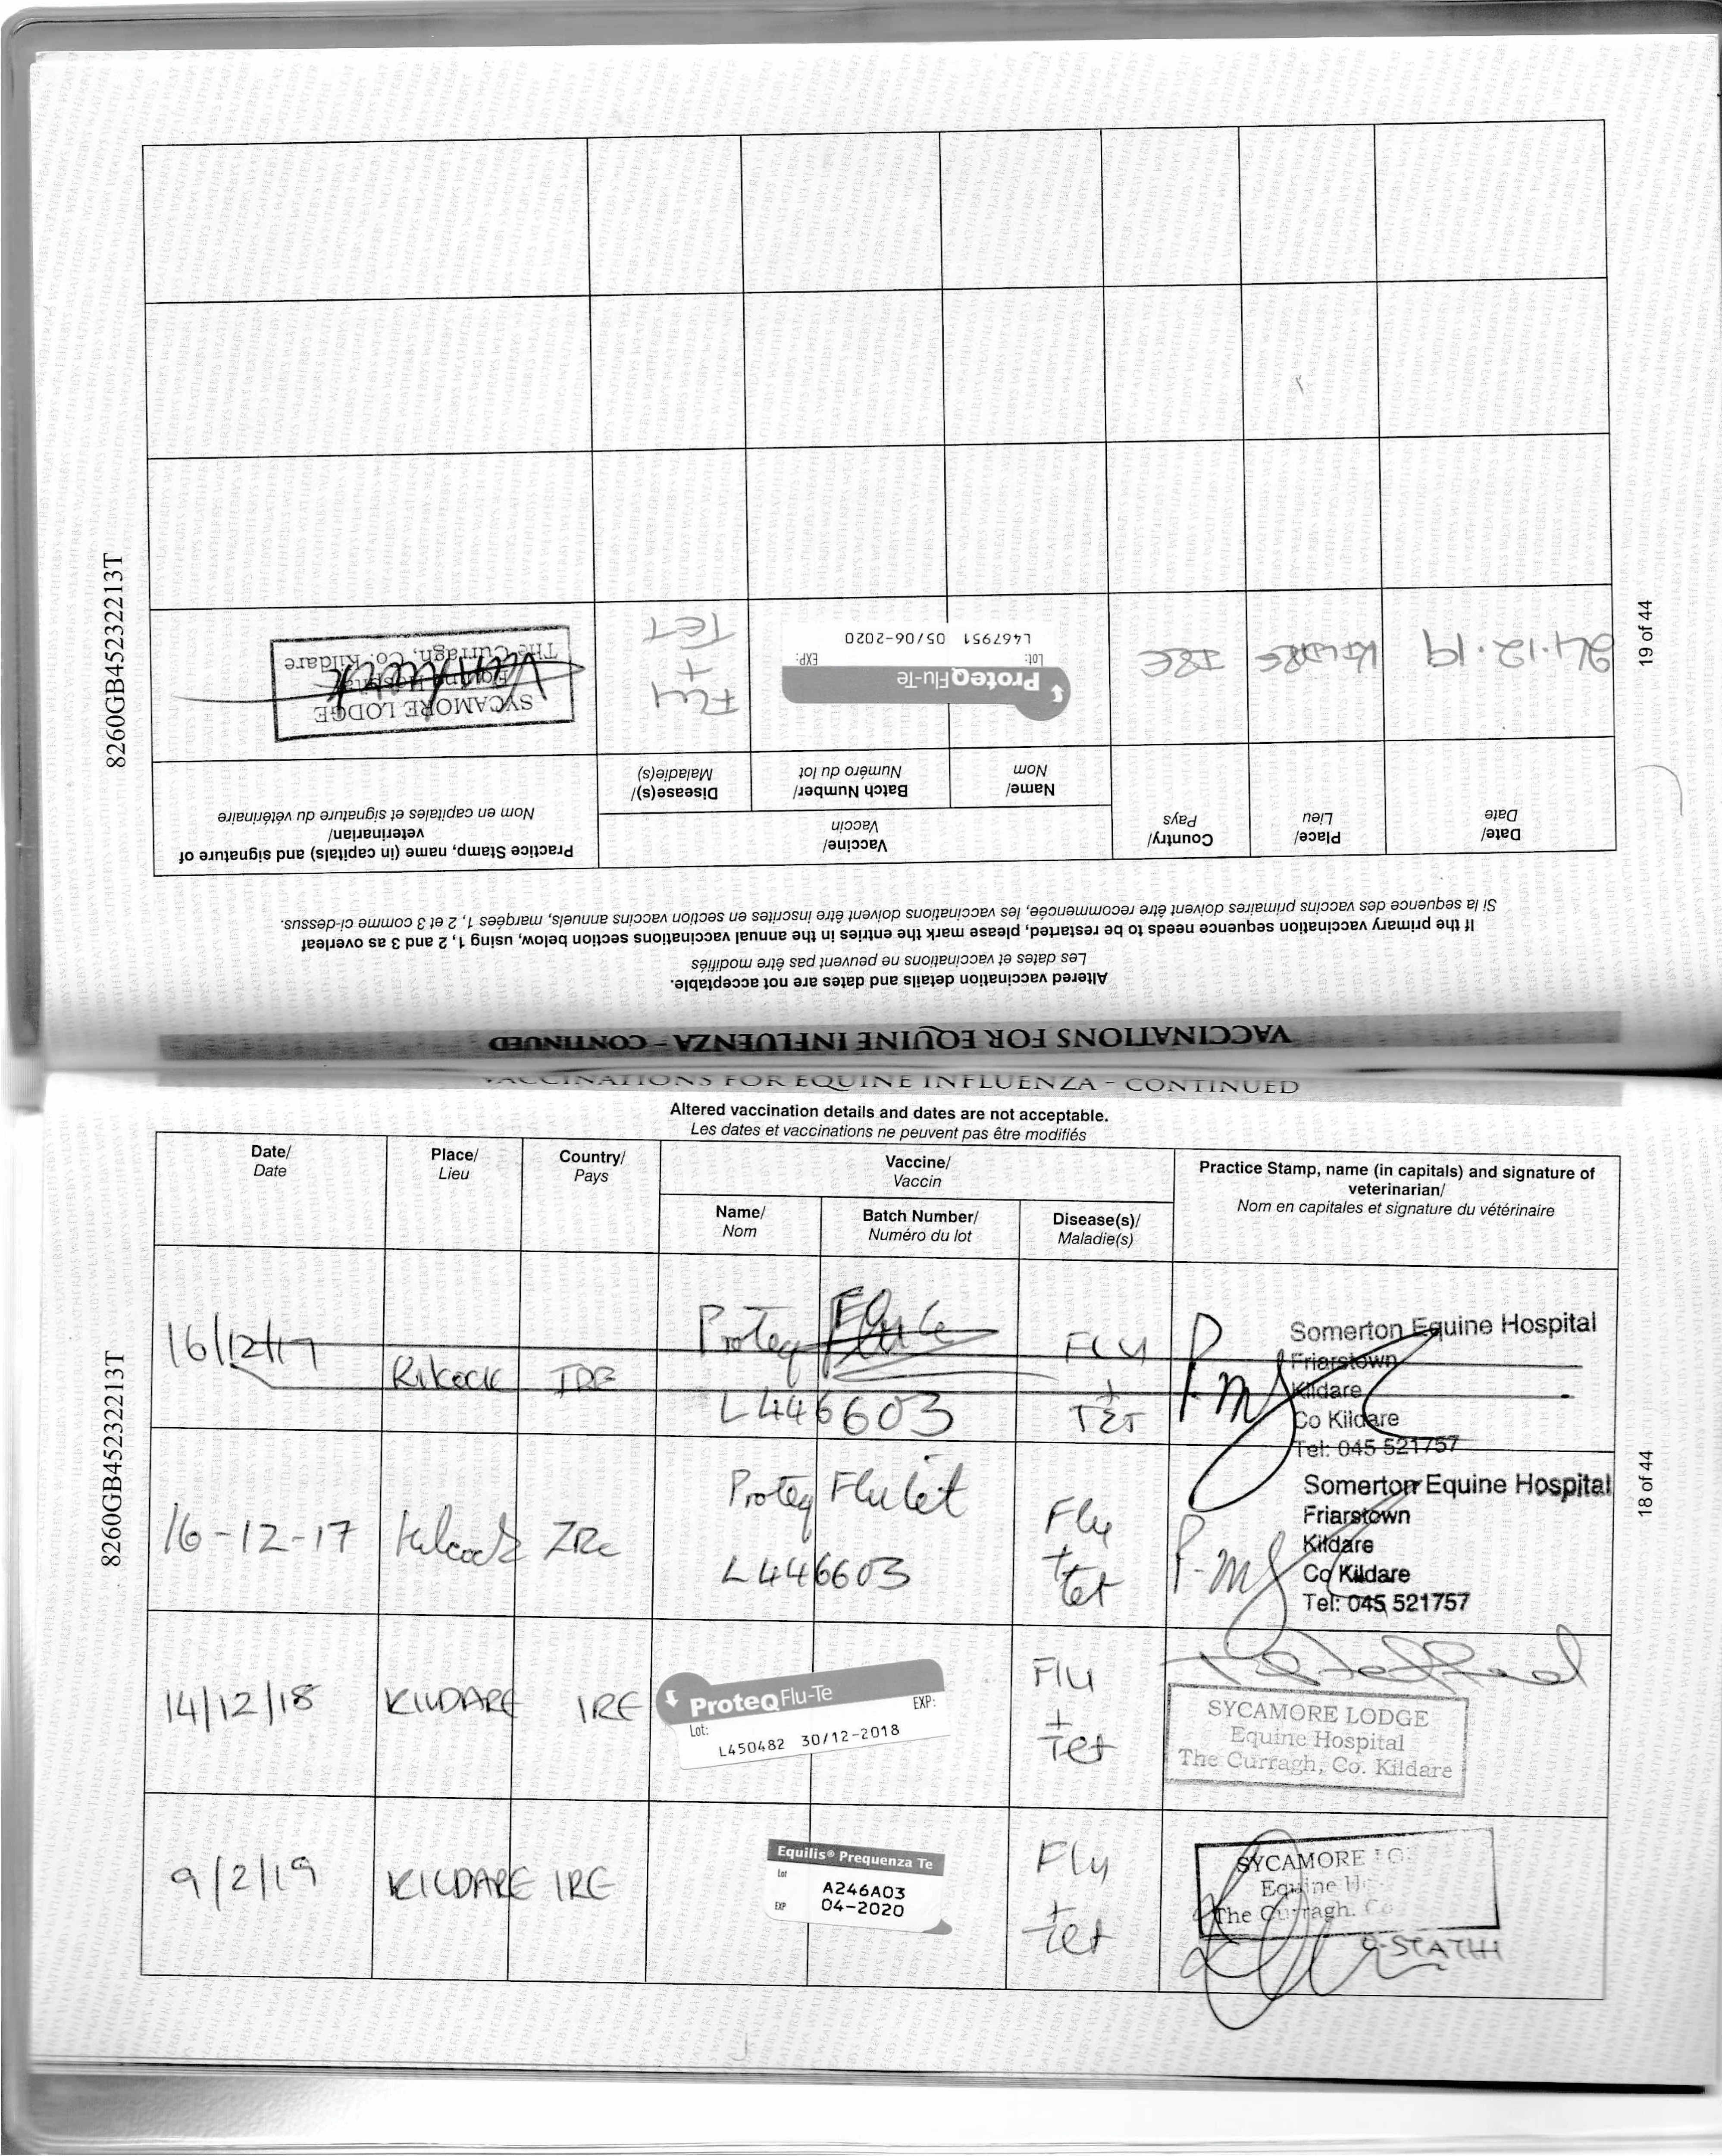 VACCINATIONS FOR EQUINE INFLUENZA - CONTINUED
Altered vaccination details and dates are not acceptable.
Les dates et vaccinations ne peuvent pas être modifiés
If the primary vaccination sequence needs to be restarted, please mark the entries in the annual vaccinations section below, using 1, 2 and 3 as overleaf
Si la sequence des vaccins primaires doivent être recommencée, les vaccinations doivent être inscrites en section vaccins annuels, marqées 1, 2 et 3 comme ci-dessus.
Date/ Place/ Country/ Vaccine/ Practice Stamp, name (in capitals) and signature of
Date Lieu Pays Vaccin veterinarian/
Name/ Batch Number/ Disease(s)/ Nom en capitales et signature du vétérinaire
Nom Numéro du lot Maladie(s)
24.12.19 KILDARE IRE
ProteqFlu-Te
Lot: EXP:
L467951 05/06-2020
Flu
+
TET
SYCAMORE LODGE
Equine Hospital
The Curragh, Co. Kildare
8260GB45232213T
19 of 44
VACCINATIONS FOR EQUINE INFLUENZA - CONTINUED
Altered vaccination details and dates are not acceptable.
Les dates et vaccinations ne peuvent pas être modifiés
Date/ Place/ Country/ Vaccine/ Practice Stamp, name (in capitals) and signature of
Date Lieu Pays Vaccin veterinarian/
Name/ Batch Number/ Disease(s)/ Nom en capitales et signature du vétérinaire
Nom Numéro du lot Maladie(s)
16/12/17 IRE Proteq
L446603
FLU
+
TET
Somerton Equine Hospital
Friarstown
Kildare
Co Kildare
Tel: 045 521757
16-12-17 Kilcock IRe Proteq Flu tet
L446603
Flu
+
tet
Somerton Equine Hospital
Friarstown
Kildare
Co Kildare
Tel: 045 521757
14/12/18 KILDARE IRE
ProteqFlu-Te
Lot: EXP:
L450482 30/12-2018
Flu
+
Tet
SYCAMORE LODGE
Equine Hospital
The Curragh, Co. Kildare
9/2/19 KILDARE IRE
Equilis® Prequenza Te
Lot A246A03
EXP 04-2020
Flu
+
tet
SYCAMORE LO
Equine
The Curragh. Co
8260GB45232213T
18 of 44